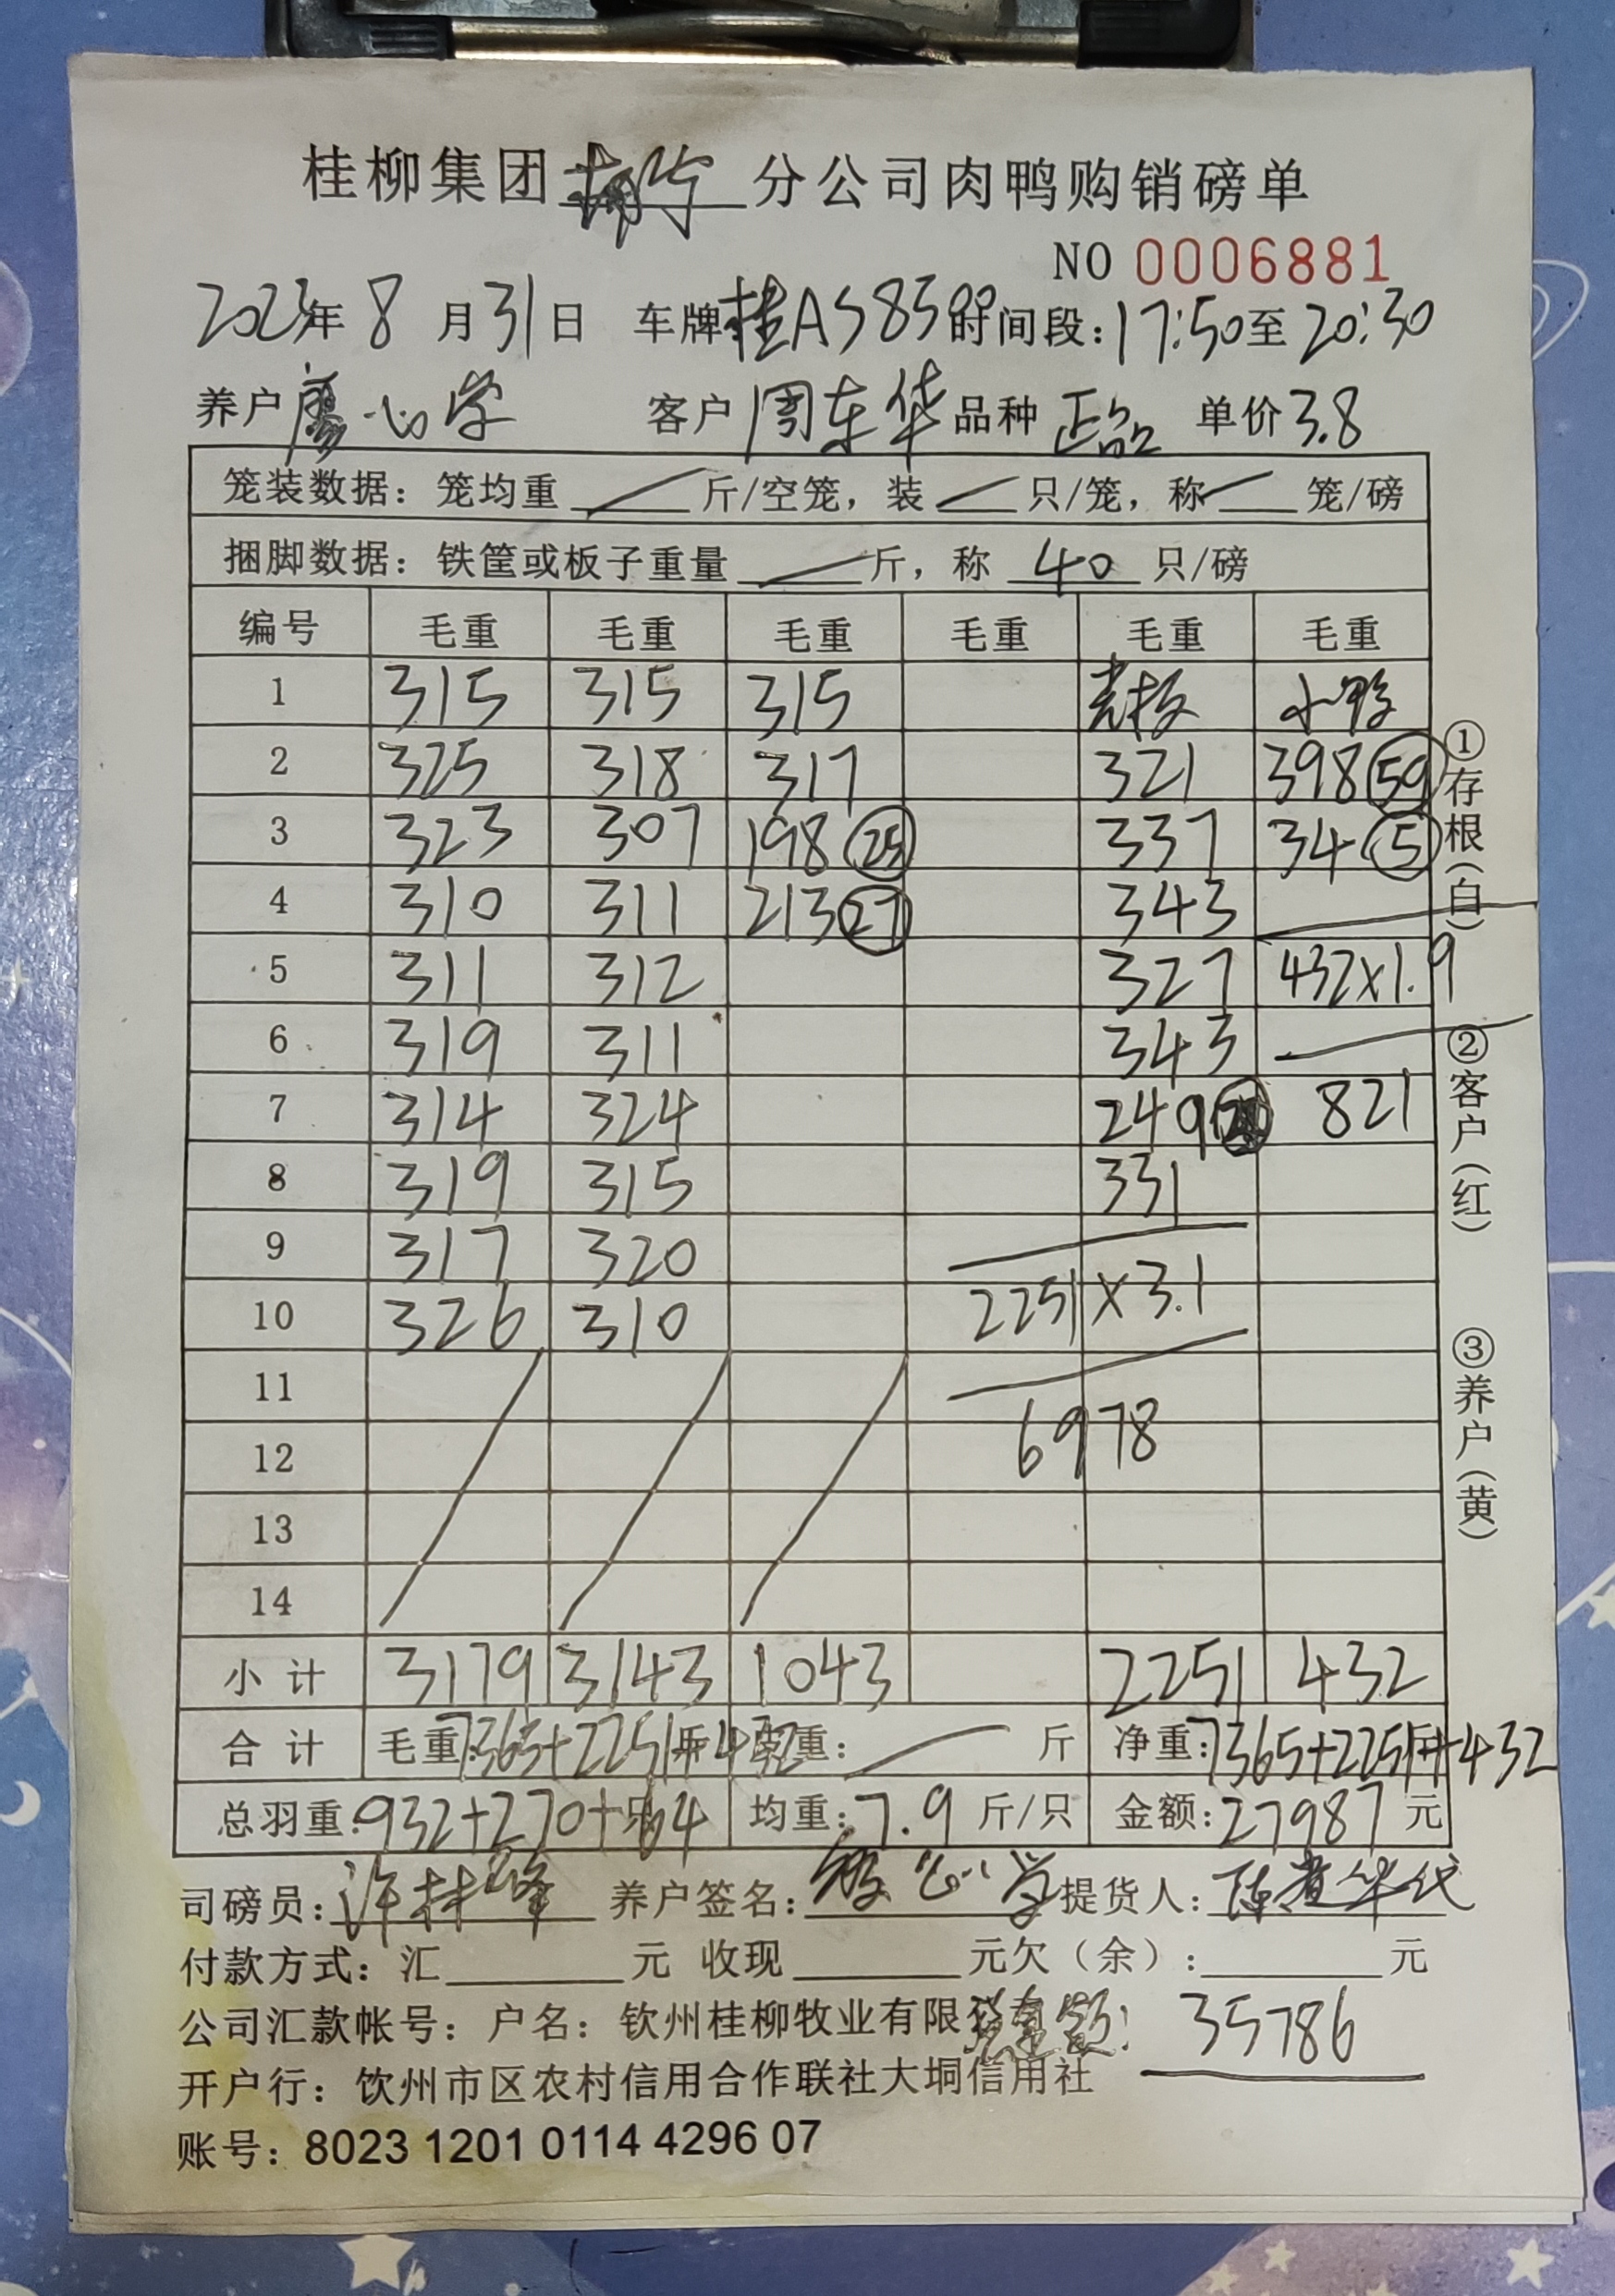 桂柳集团南宁分公司肉鸭购销磅单
NO 0006881
2023年 8 月 31 日 车牌桂AS8500时间段:17:50至20:30
养户廖心学 客户周东华 品种正品 单价3.8
笼装数据: 笼均重 斤/空笼, 装 只/笼, 称 笼/磅
捆脚数据: 铁筐或板子重量 斤, 称 40 只/磅
编号 毛重 毛重 毛重 毛重 毛重 毛重
1 315 315 315 老板 小鸭
2 325 318 317 321 398 59
3 323 307 198 25 337 34 5
4 310 311 213 27 343
5 311 312 327 432×1.9
6 319 311 343
7 314 324 249 821
8 319 315 331
9 317 320
2251×3.1
10 326 310
11
6978
12
13
14
小计 3179 3143 1043 2251 432
合计 毛重:7365+2251+432斤 重: 斤 净重:7365+2251+432斤
总羽重:932+270+64只 均重:7.9斤/只 金额:27987元
司磅员:许林峰 养户签名: 心学 提货人: 华代
付款方式: 汇 元 收现 元欠(余): 元
公司汇款帐号: 户名: 钦州桂柳牧业有限 额: 35786
开户行: 钦州市区农村信用合作联社大垌信用社
账号: 8023 1201 0114 4296 07
①存根(白)
②客户(红)
③养户(黄)